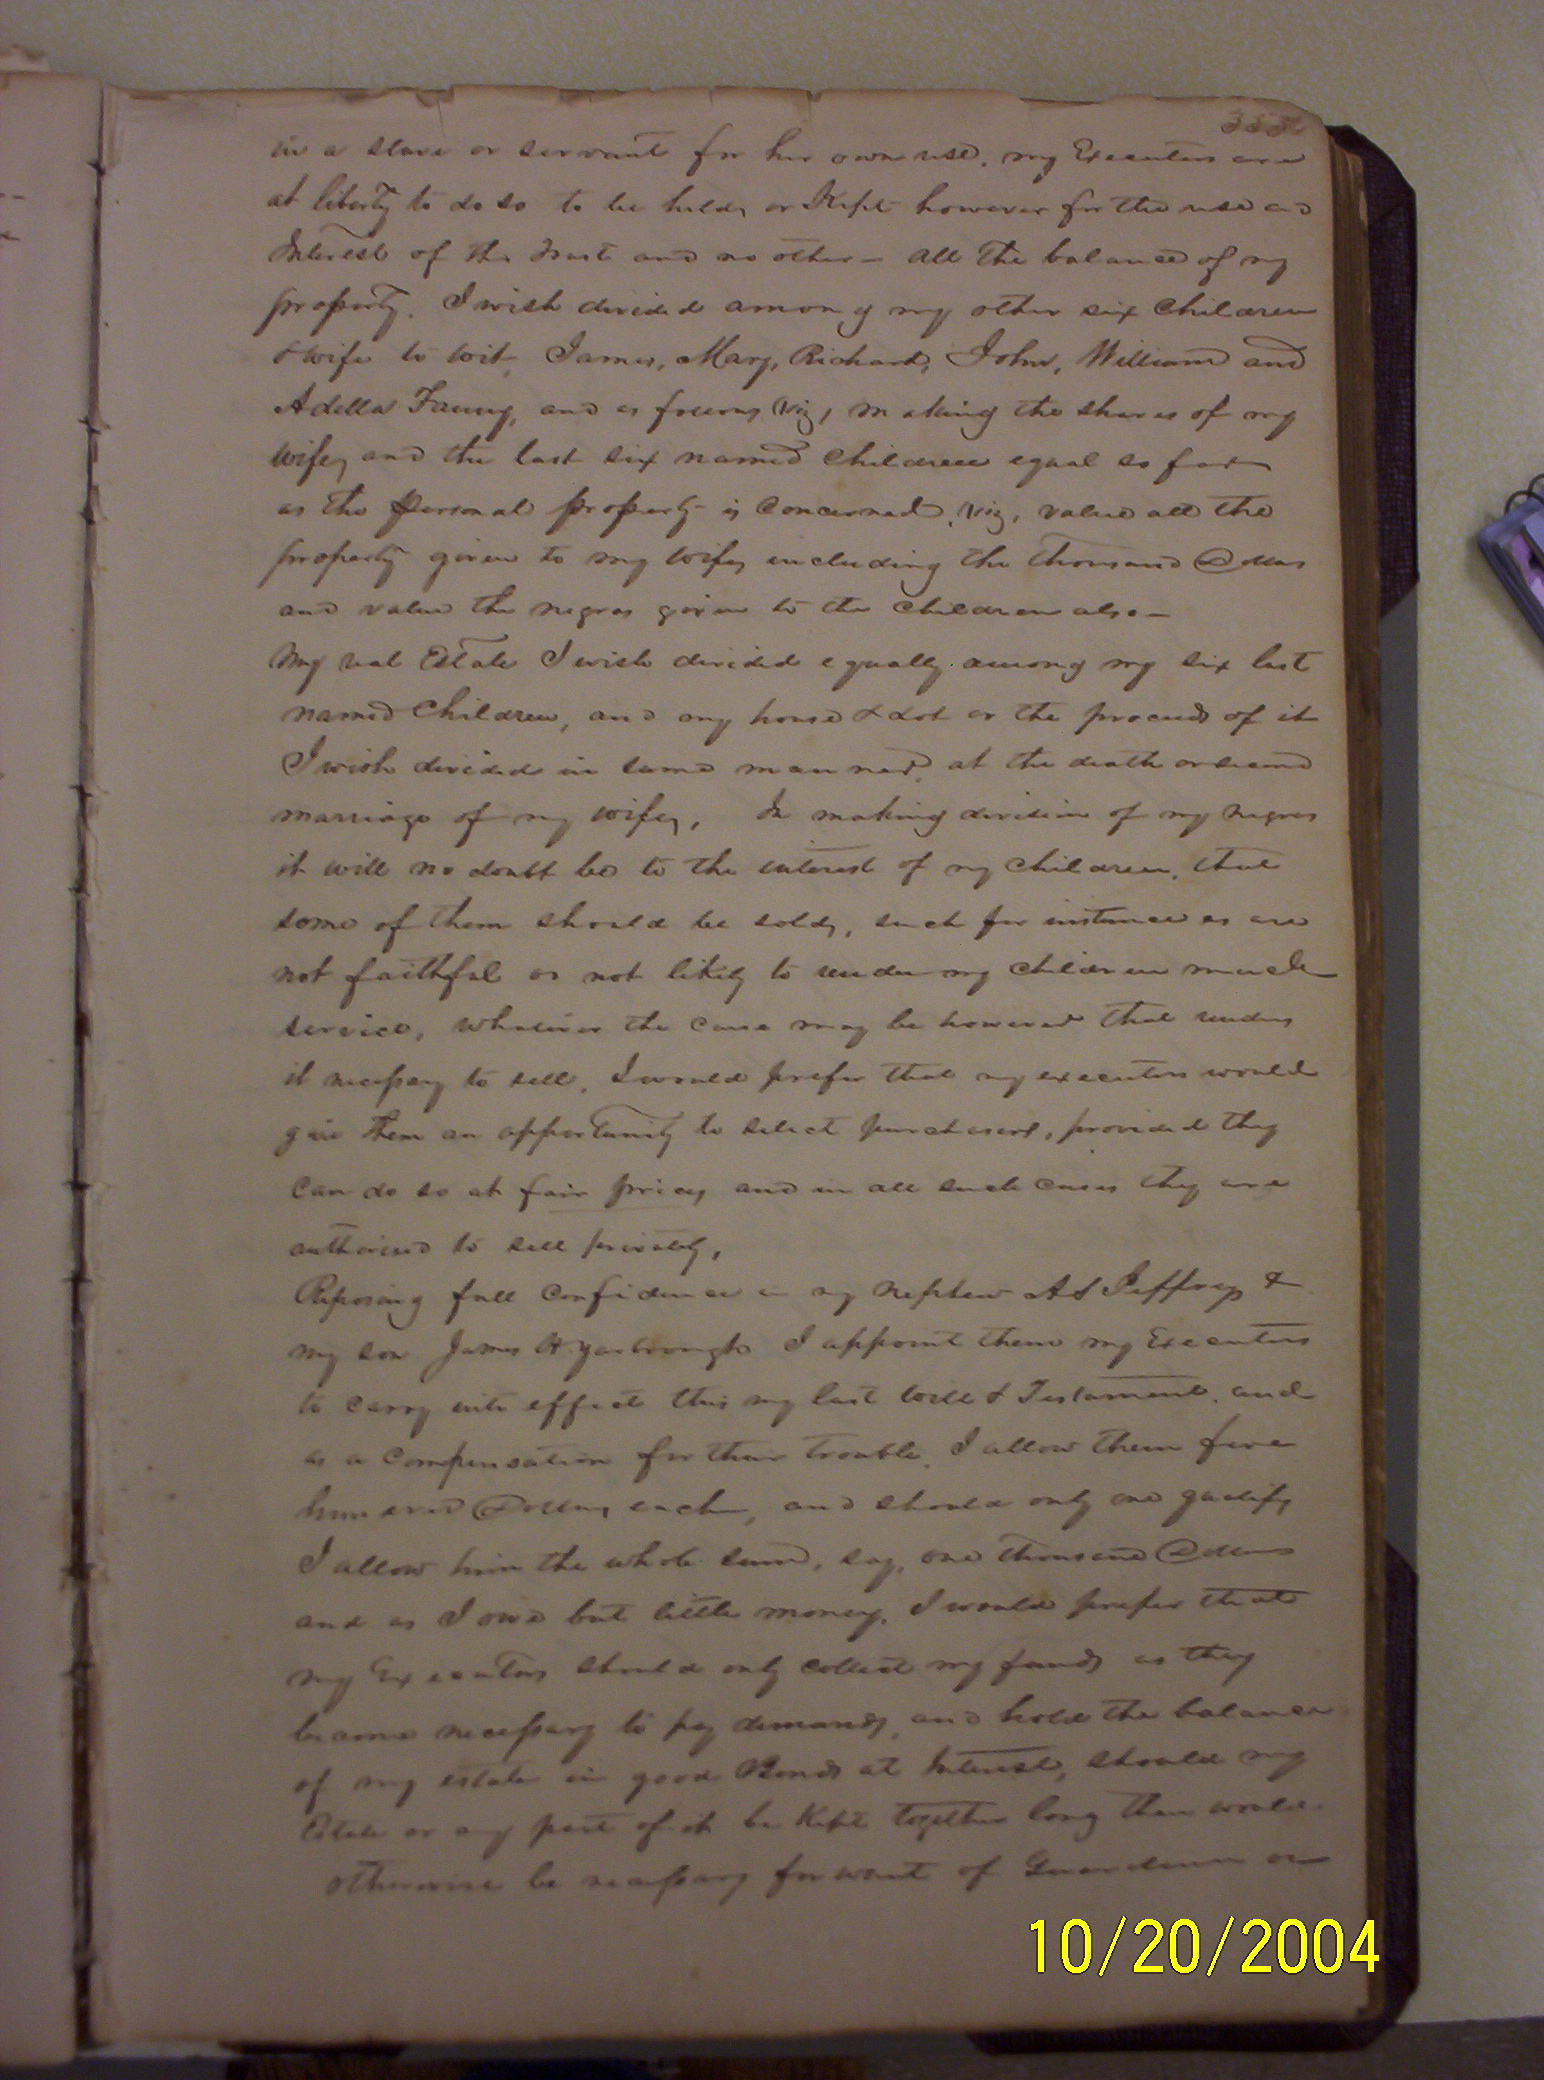 in a slave or servant for her own use, my Executors are
at liberty to do so to be held, or Kept however for the use and
Interest of the Trust and no other - All the balance of my
property. I wish divided among my other six Children
& wife to wit, James, Mary, Richard, John, William and
Adella Fanny, and as follows (viz, making the shares of my
wife, and the last six named Children equal so far
as the personal property is Concerned, viz, value all the
property given to my wife, including the thousand Dollars
and value the negros given to the Children also -
My real Estate I wish divided equally among my six last
named Children, and my house & Lot or the proceeds of it
I wish divided in same manner, at the death or second
marriage of my wife, In making division of my negros
it will no doubt be to the interest of my Children, that
some of them should be sold, such for instance as are
not faithful or not likely to render my Children much
service, whatever the case may be however that renders
it necessary to sell, I would prefer that my executors would
give them an opportunity to select purchasers, provided they
Can do so at fair prices and in all such cases they are
authorised to sell privately,
Reposing full Confidence in my Nephew A S Jeffreys &
my son James H Yarbrough I appoint them my Executors
to carry into effect this my last Will & Testament, and
as a Compensation for their trouble, I allow them five
hundred Dollars each, and should only one qualify
I allow him the whole sum, say, one thousand Dollars
and as I owe but little money, I would prefer that
my Executors should only collect my funds as they
become necessary to pay demands, and hold the balance
of my estate in good Bonds at Interest, should my
Estate or any part of it be Kept together long than would
otherwise be necessary for want of Guardian or
10/20/2004